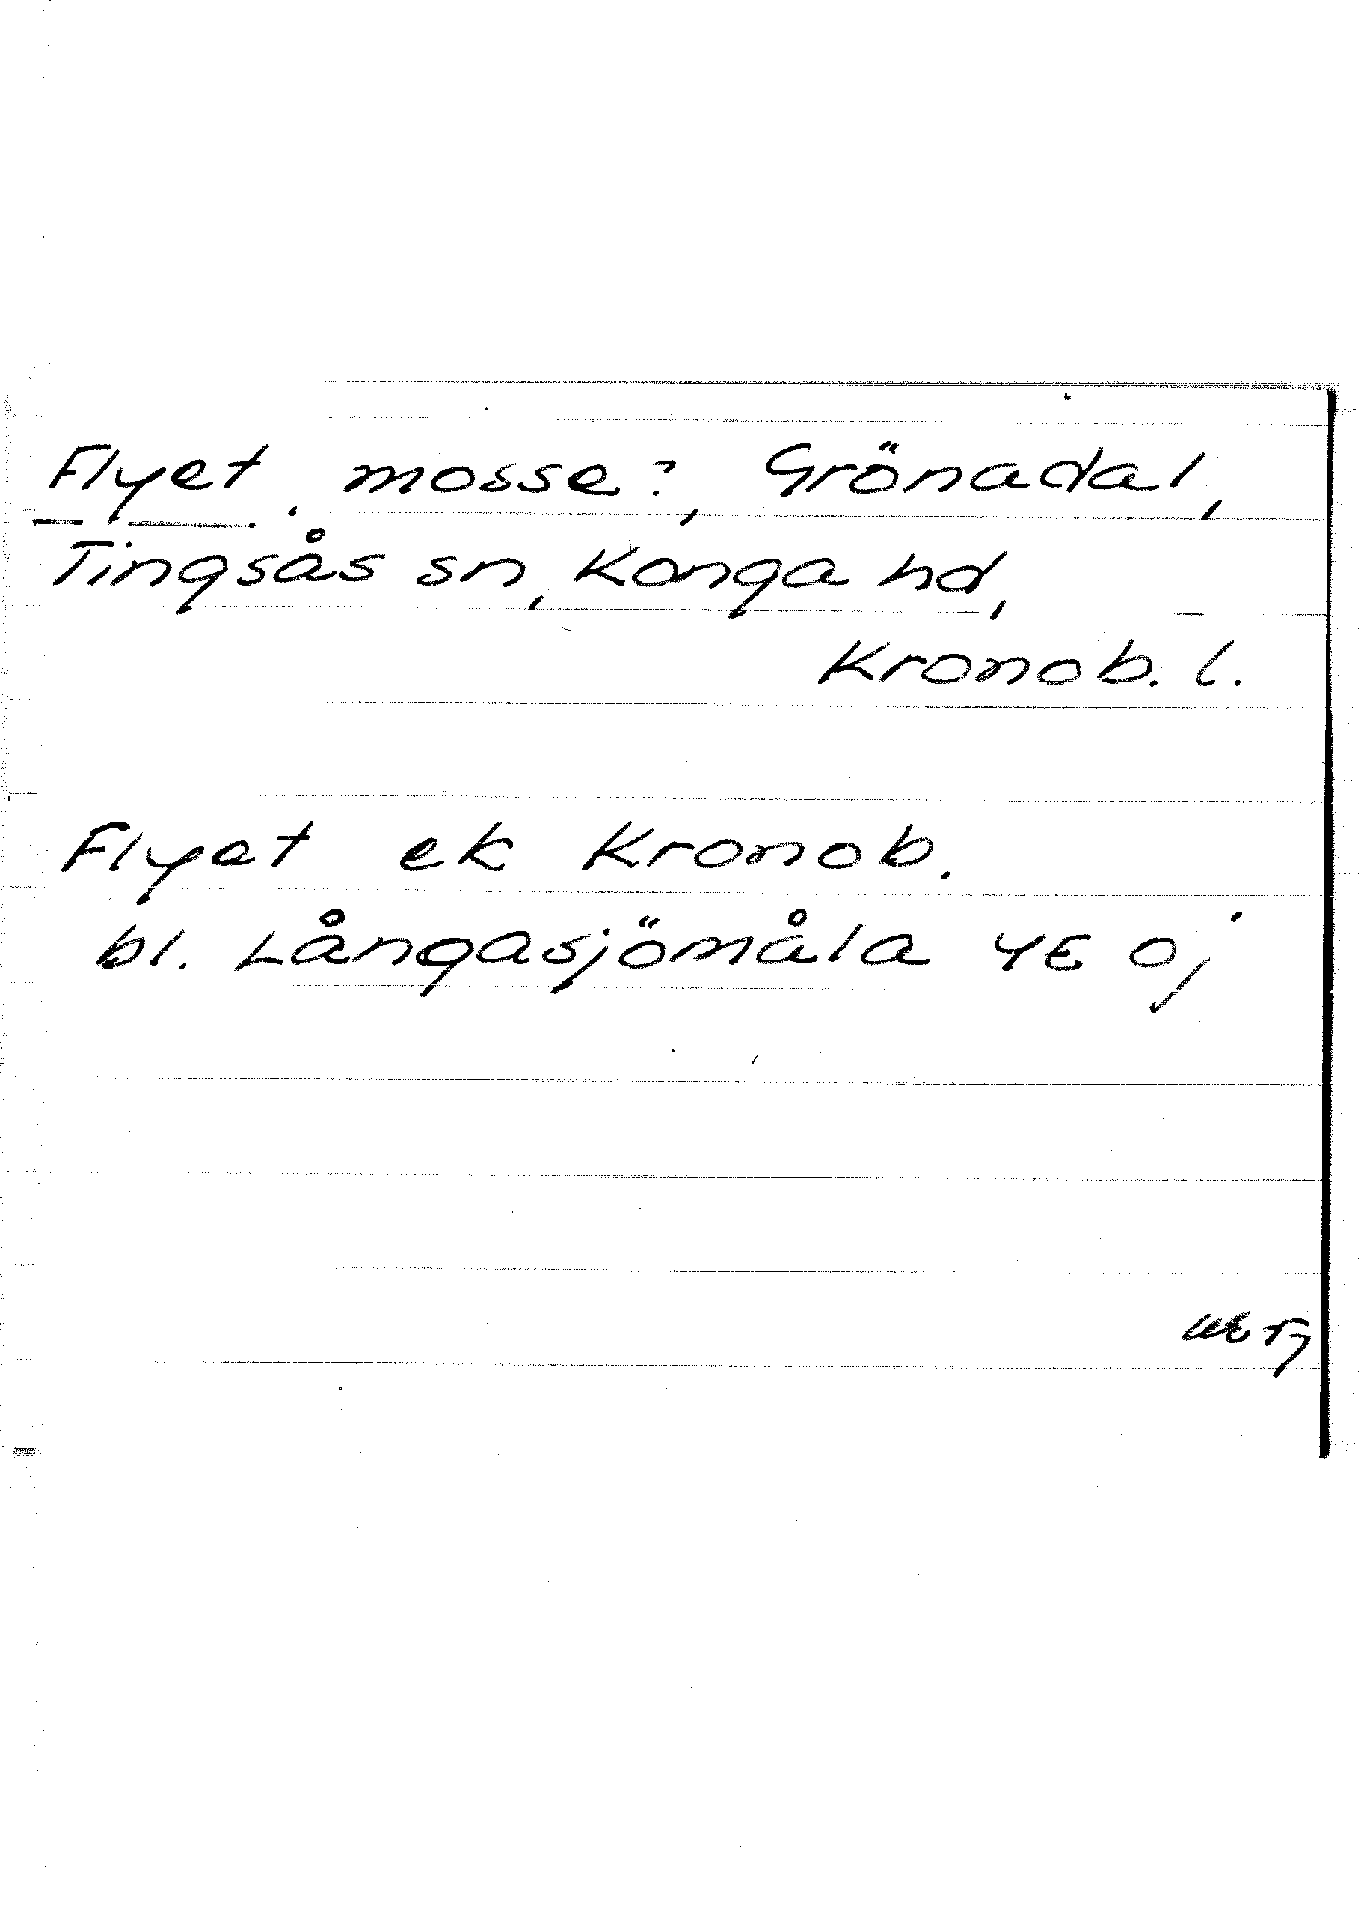 Flyet, mosse?, Grönadal,
Tingsås sn, Konga hd,
Kronob. l.
Flyet ek Kronob.
bl. Långasjömåla 4E 0j